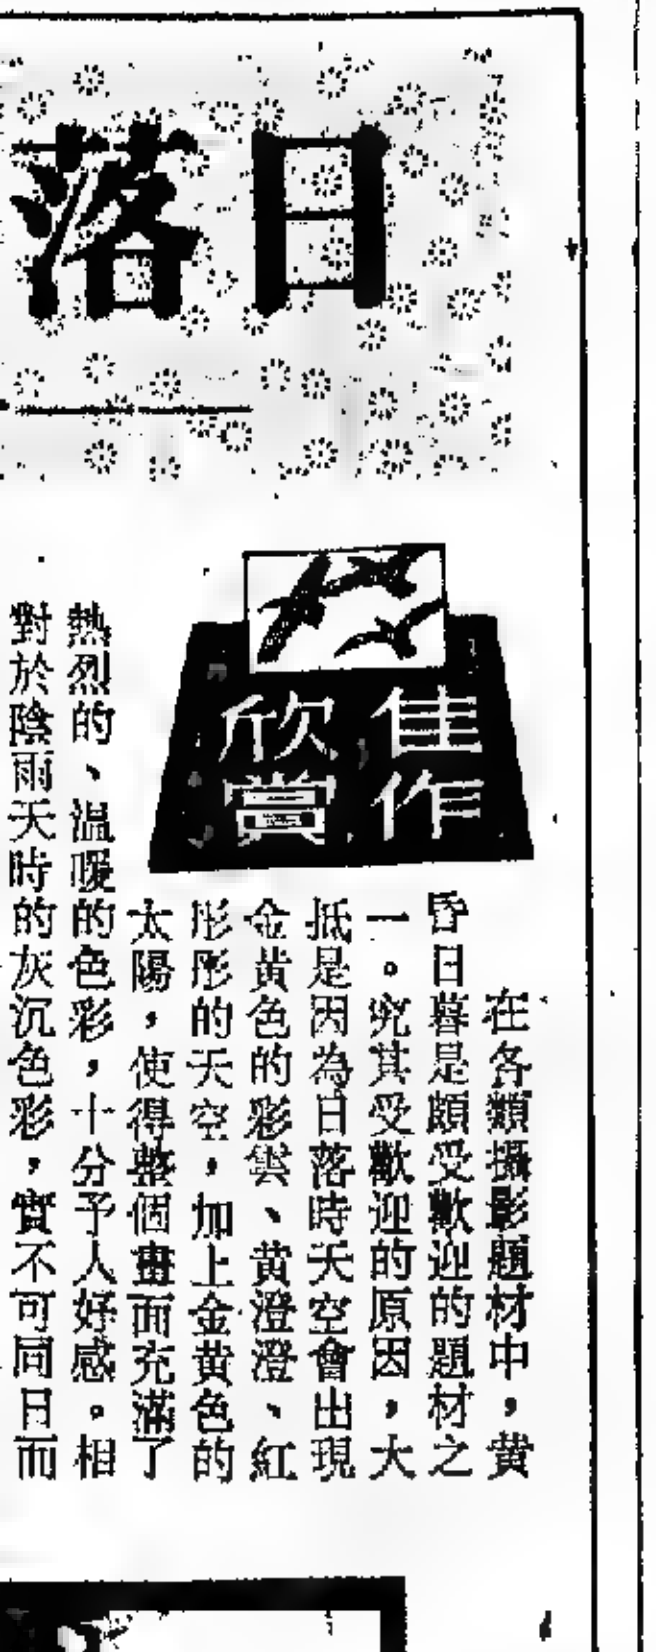 日落
佳作
欣賞
在各類攝影題材中，黃
昏日暮是頗受歡迎的題材之
一。究其受歡迎的原因，大
抵是因為日落時天空會出現
金黃色的彩雲、黃澄澄、紅
彤彤的天空，加上金黃色的
太陽，使得整個畫面充滿了
熱烈的、溫暖的色彩，十分予人好感。相
對於陰雨天時的灰沉色彩，實不可同日而